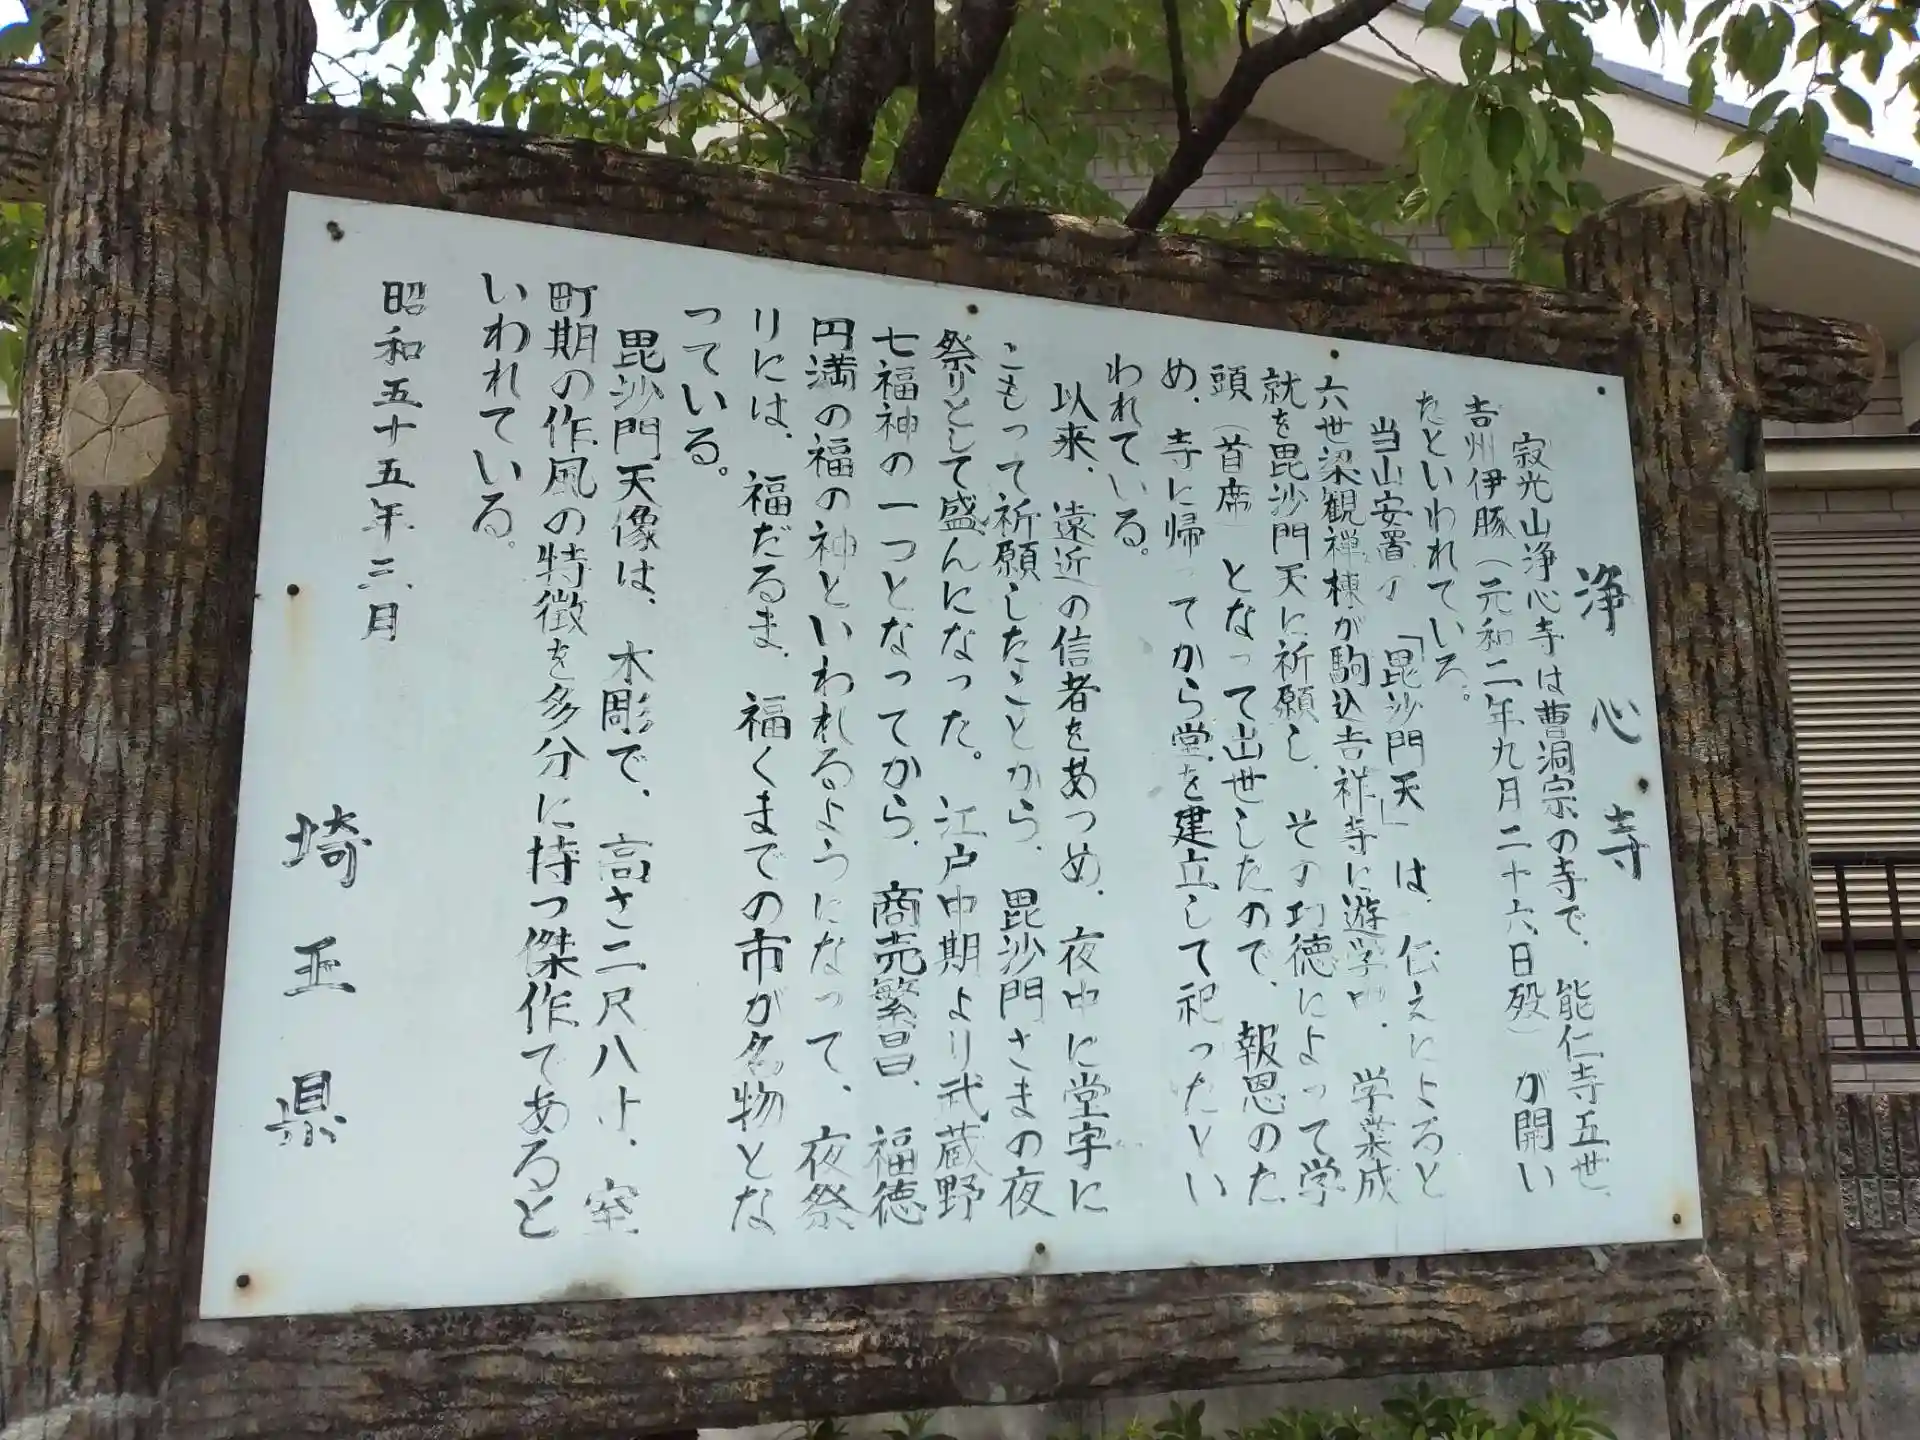 浄心寺
寂光山浄心寺は曹洞宗の寺で、能仁寺五世、
吉州伊豚（元和二年九月二十六日歿）が開い
たといわれている。
当山安置の「毘沙門天」は、伝えによると
六世梁観禅棟が駒込吉祥寺に遊学中、学業成
就を毘沙門天に祈願し、その功徳によって学
頭（首席）となって出世したので、報恩のた
め、寺に帰ってから堂を建立して祀ったとい
われている。
以来、遠近の信者をあつめ、夜中に堂宇に
こもって祈願したことから、毘沙門さまの夜
祭りとして盛んになった。江戸中期より武蔵野
七福神の一つとなってから、商売繁昌、福徳
円満の福の神といわれるようになって、夜祭
りには、福だるま、福くまでの市が名物とな
っている。
毘沙門天像は、木彫で、高さ二尺八寸、室
町期の作風の特徴を多分に持つ傑作であると
いわれている。
昭和五十五年三月
埼玉県